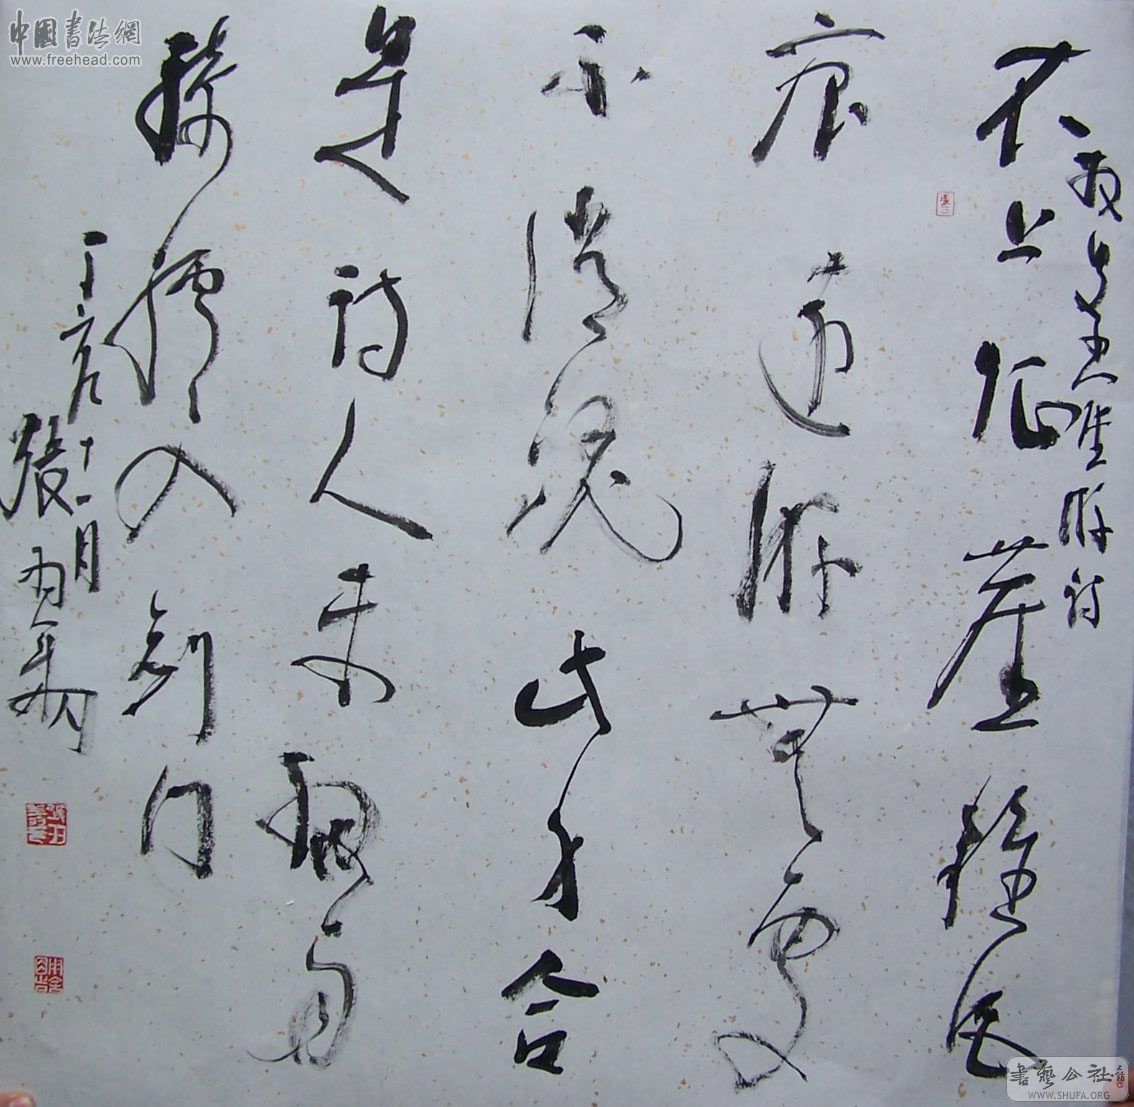 中國書法網
www.freehead.com
衣上征塵雜酒
游詩
痕遠游無處
不消魂此身合
是詩人未細雨
騎驢入劍門
丁亥十一月
張
書藝公社
WWW.SHUFA.ORG